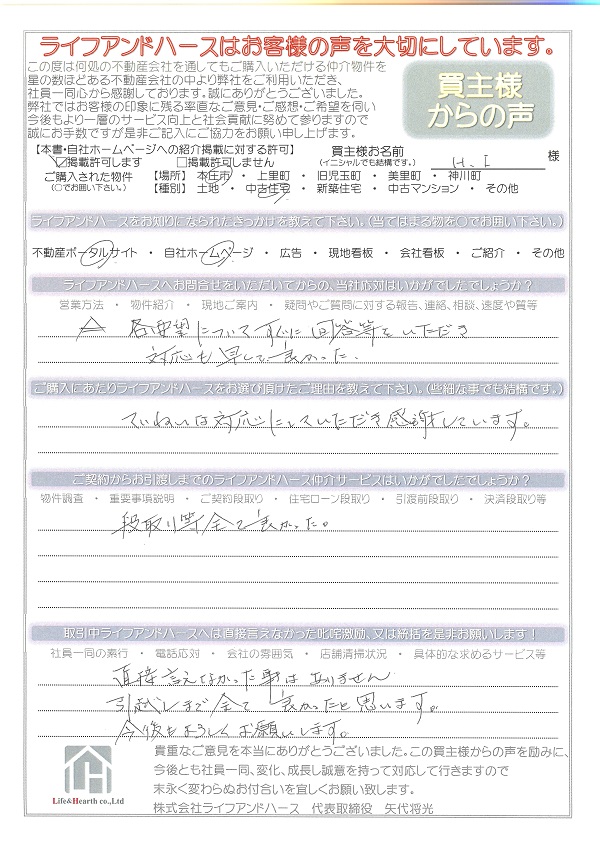 ライフアンドハースはお客様の声を大切にしています。
この度は何処の不動産会社を通してもご購入いただける仲介物件を
星の数ほどある不動産会社の中より弊社をご利用いただき、
社員一同心から感謝しております。誠にありがとうございました。
弊社ではお客様の印象に残る率直なご意見・ご感想・ご希望を伺い
今後もより一層のサービス向上と社会貢献に努めて参りますので
誠にお手数ですが是非ご記入にご協力をお願い申し上げます。
買主様
からの声
【本書・自社ホームページへの紹介掲載に対する許可】
☑掲載許可します □掲載許可しません
買主様お名前
(イニシャルでも結構です。)
H.I 様
ご購入された物件 【場所】 本庄市 ・ 上里町 ・ 旧児玉町 ・ 美里町 ・ 神川町
(○でお囲い下さい。) 【種別】 土地 ・ 中古住宅 ・ 新築住宅 ・ 中古マンション ・ その他
ライフアンドハースをお知りになられたきっかけを教えて下さい。(当てはまる物を○でお囲い下さい。)
不動産ポータルサイト ・ 自社ホームページ ・ 広告 ・ 現地看板 ・ 会社看板 ・ ご紹介 ・ その他
ライフアンドハースへお問合せをいただいてからの、当社応対はいかがでしたでしょうか?
営業方法 ・ 物件紹介 ・ 現地ご案内 ・ 疑問やご質問に対する報告、連絡、相談、速度や質等
各要望についてすぐに回答等をいただき
対応も早くて良かった.
ご購入にあたりライフアンドハースをお選び頂けたご理由を教えて下さい。(些細な事でも結構です。)
ていねいな対応にしていただき感謝しています。
ご契約からお引渡しまでのライフアンドハース仲介サービスはいかがでしたでしょうか?
物件調査 ・ 重要事項説明 ・ ご契約段取り ・ 住宅ローン段取り ・ 引渡前段取り ・ 決済段取り等
段取り等全て良かった。
取引中ライフアンドハースへは直接言えなかった叱咤激励、又は統括を是非お願いします!
社員一同の素行 ・ 電話応対 ・ 会社の雰囲気 ・ 店舗清掃状況 ・ 具体的な求めるサービス等
直接言えなかった事はありません
引越しまで全て良かったと思います。
今後もよろしくお願いします。
貴重なご意見を本当にありがとうございました。この買主様からの声を励みに、
今後とも社員一同、変化、成長し誠意を持って対応して行きますので
末永く変わらぬお付合いを宜しくお願い致します。
Life&Hearth co.,Ltd
株式会社ライフアンドハース 代表取締役 矢代将光